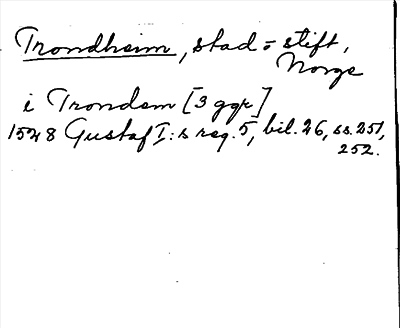 Trondheim, stad o stift,
Norge
i Trondem [3 ggr]
1528 Gustaf I:s reg. 5, bil. 26, ss. 251,
252.